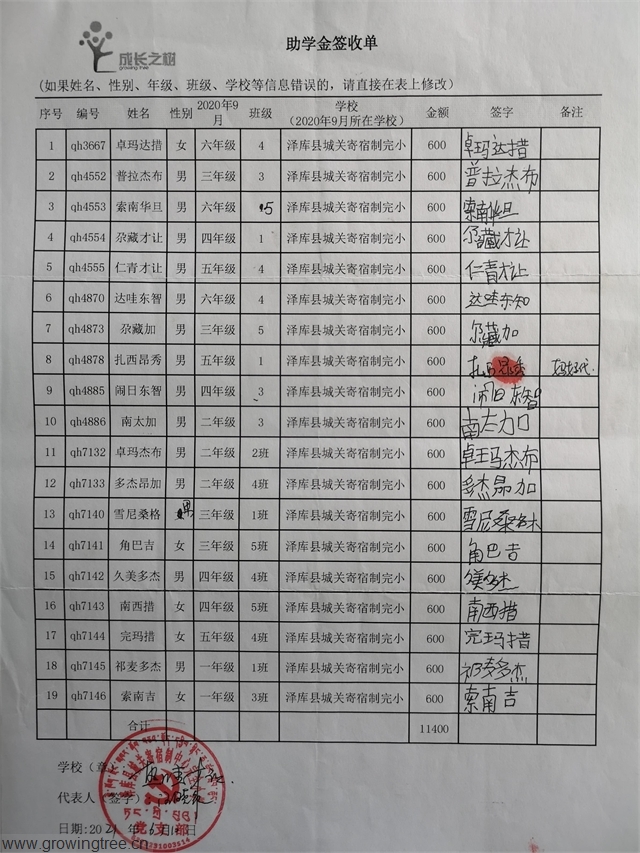 成长之树
growing tree
助学金签收单
(如果姓名、性别、年级、班级、学校等信息错误的，请直接在表上修改)
序号 编号 姓名 性别 2020年9月 班级 学校（2020年9月所在学校） 金额 签字 备注
1 qh3667 卓玛达措 女 六年级 4 泽库县城关寄宿制完小 600 卓玛达措
2 qh4552 普拉杰布 男 三年级 3 泽库县城关寄宿制完小 600 普拉杰布
3 qh4553 索南华旦 男 六年级 5 泽库县城关寄宿制完小 600 索南华旦
4 qh4554 尕藏才让 男 四年级 1 泽库县城关寄宿制完小 600 尕藏才让
5 qh4555 仁青才让 男 五年级 4 泽库县城关寄宿制完小 600 仁青才让
6 qh4870 达哇东智 男 六年级 4 泽库县城关寄宿制完小 600 达哇东知
7 qh4873 尕藏加 男 三年级 5 泽库县城关寄宿制完小 600 尕藏加
8 qh4878 扎西昂秀 男 五年级 1 泽库县城关寄宿制完小 600 扎西昂秀
9 qh4885 闹日东智 男 四年级 3 泽库县城关寄宿制完小 600 闹日东智
10 qh4886 南太加 男 二年级 3 泽库县城关寄宿制完小 600 南太加
11 qh7132 卓玛杰布 男 二年级 2班 泽库县城关寄宿制完小 600 卓玛杰布
12 qh7133 多杰昂加 男 二年级 4班 泽库县城关寄宿制完小 600 多杰昂加
13 qh7140 雪尼桑格 男 三年级 1班 泽库县城关寄宿制完小 600 雪尼桑格
14 qh7141 角巴吉 女 三年级 5班 泽库县城关寄宿制完小 600 角巴吉
15 qh7142 久美多杰 男 四年级 4班 泽库县城关寄宿制完小 600
16 qh7143 南西措 女 四年级 5班 泽库县城关寄宿制完小 600 南西措
17 qh7144 完玛措 女 五年级 4班 泽库县城关寄宿制完小 600 完玛措
18 qh7145 祁麦多杰 男 一年级 1班 泽库县城关寄宿制完小 600 祁麦多杰
19 qh7146 索南吉 女 一年级 3班 泽库县城关寄宿制完小 600 索南吉
合计 11400
学校（章）：
代表人（签字）：
日期:2021年6月10日
党支部
www.growingtree.cn